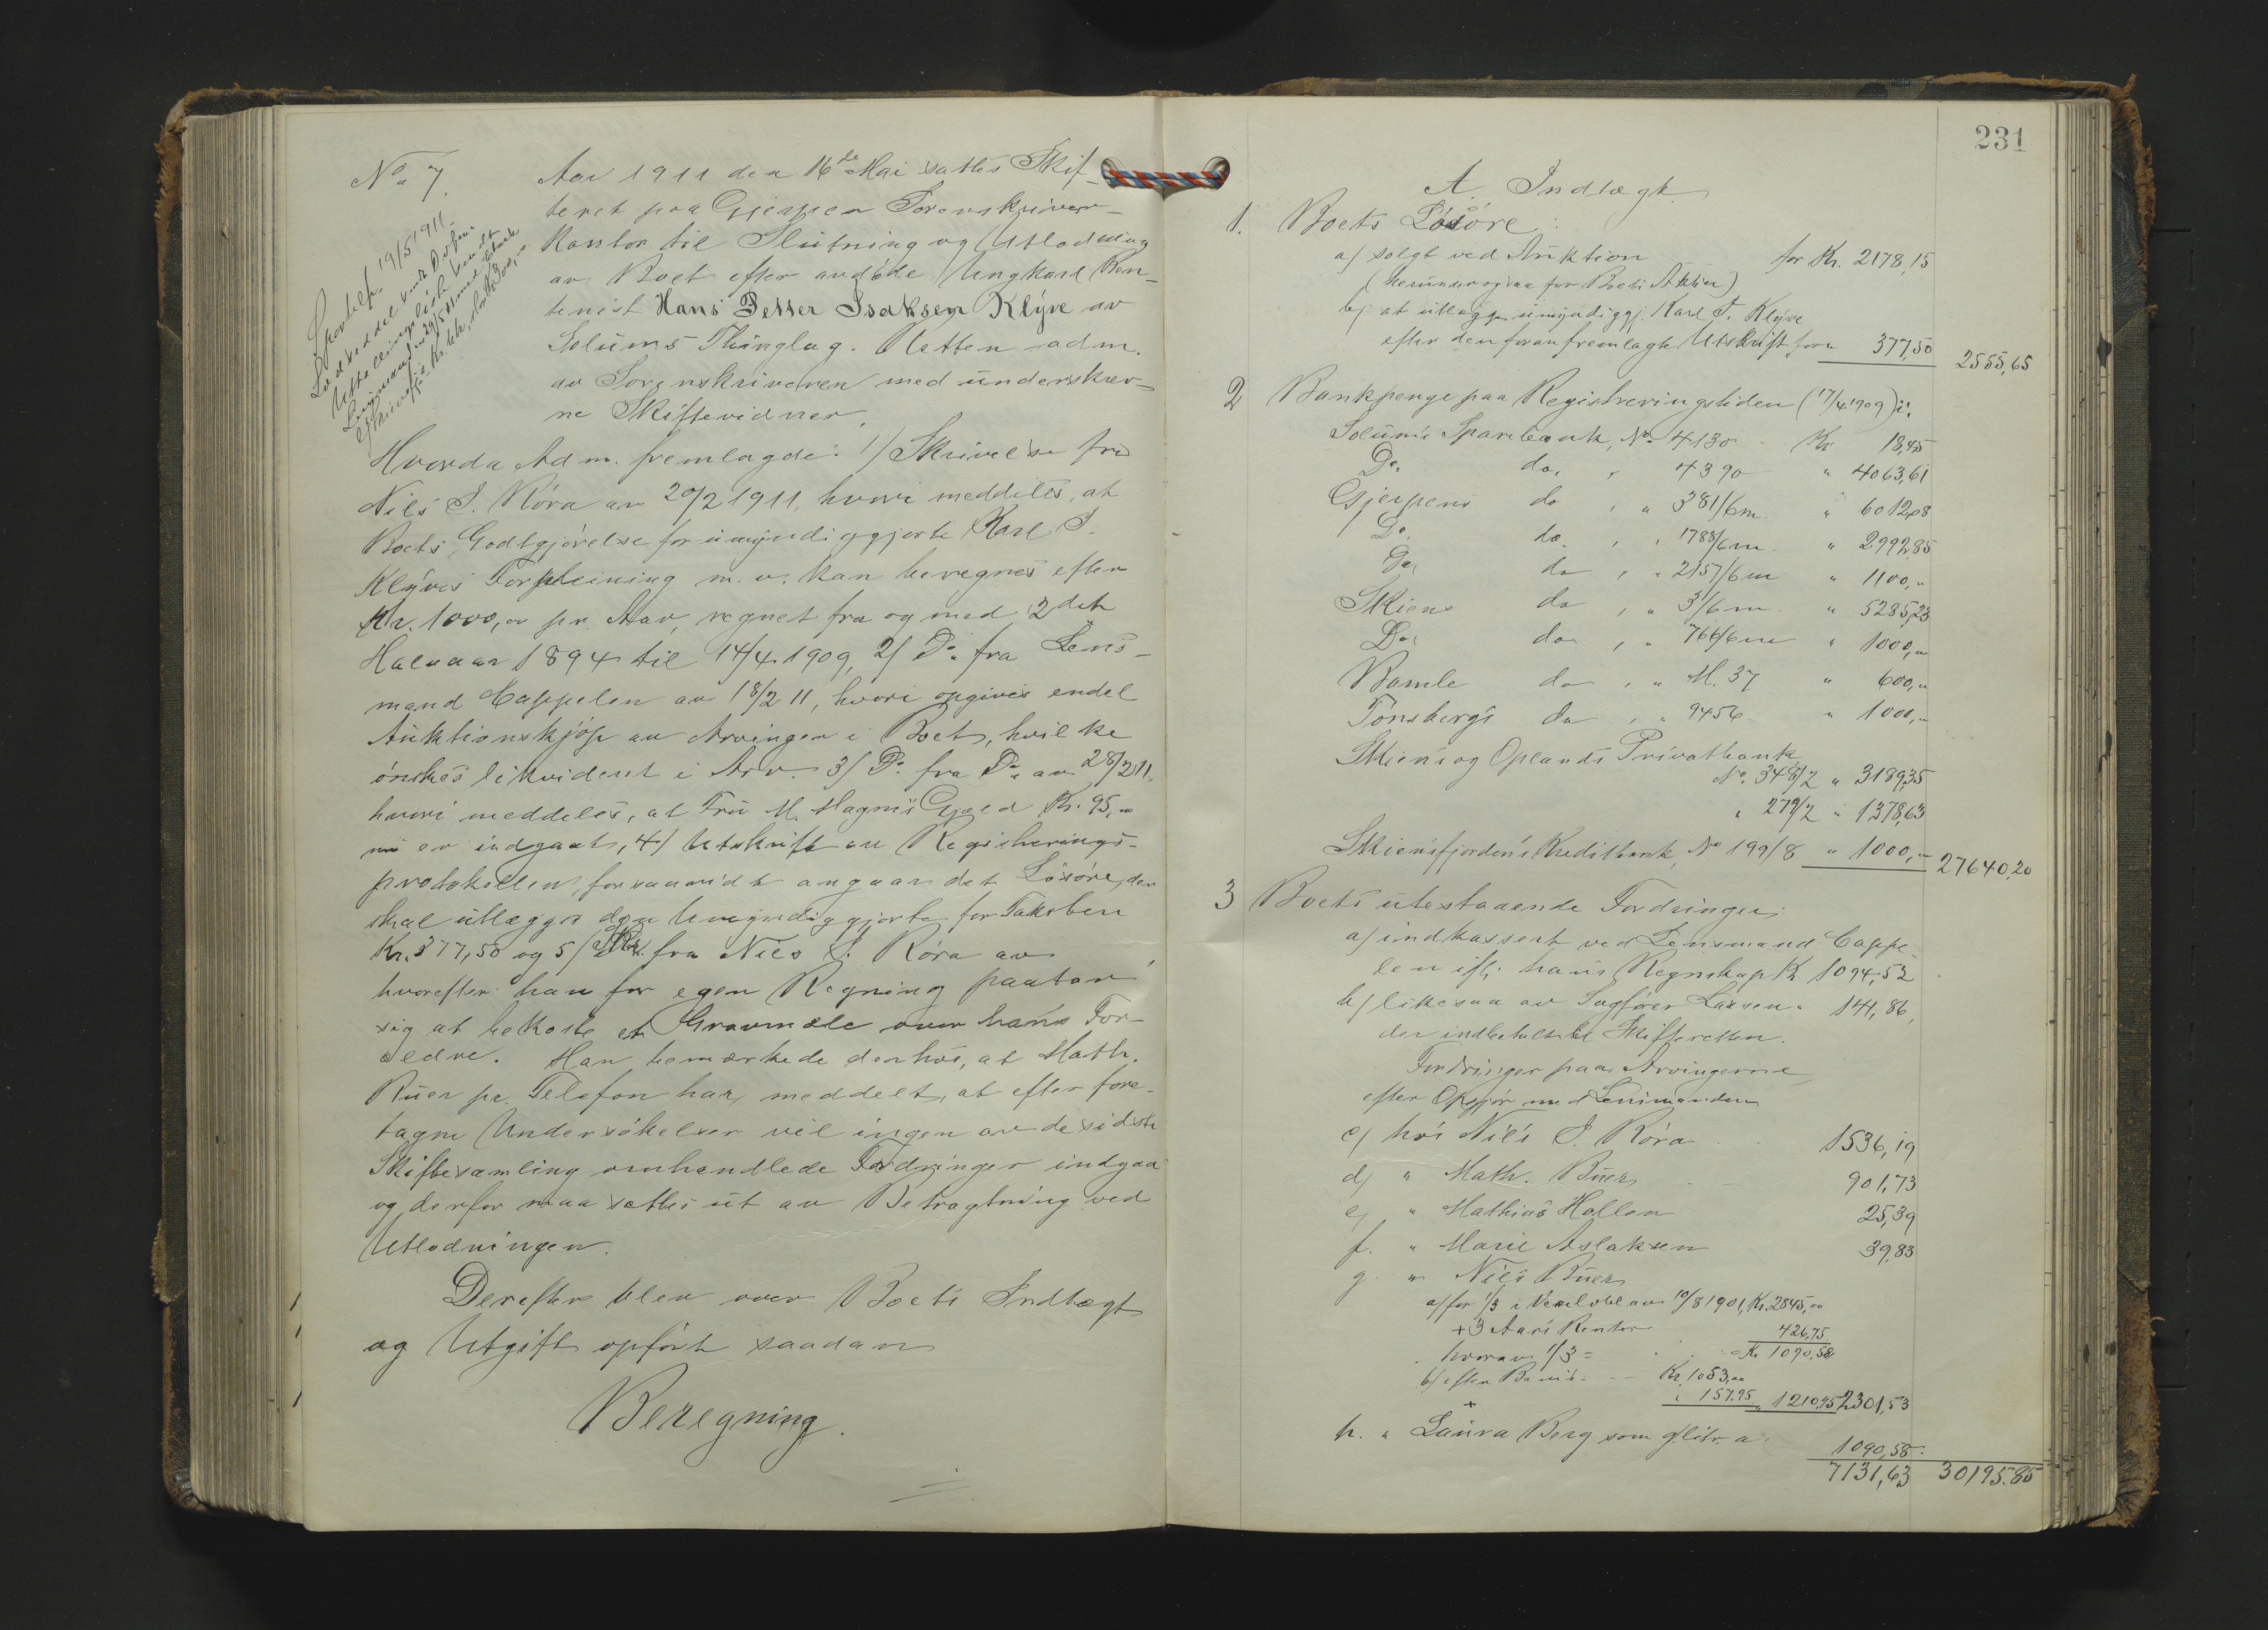 No 7.
Aar 1911 den 16de Mai sattes Skif-
teret paa Gjerpen Sorenskriver-
kontor til Slutning og Utlodning
av Boet efter avdöde Ungkarl Ren-
tenist Hans Petter Isaksen Klýve av
Solums Thinglag. Retten adm.
av Sorenskriveren med underskrev-
ne Skiftevidner.
19/5 1911
Hvorda Adm. fremlagde: 1/ Skrivelse fra
Niels I. Róra av 20/2 1911, hvori meddeles, at
Boets Godtgjörelse for umyndiggjorte Karl I.
Klýves Forpleining m. v. kan beregnes efter
Kr. 1000,00 pr. Aar, regnet fra og med 2det
Halvaar 1894 til 14/4 1909, 2/ Do fra Lens-
mand Cappelen av 18/2 11, hvori opgives endel
Auktionskjöp av Arvinger i Boet, hvilke
önskes likvidert i Arv. 3/ Do fra Do av 28/2 11,
hvori meddeles, at Fru M. Magnis Gjæld Kr. 95,00
nu er indgaat, 4/ Utskrift av Registrerings-
protokollen, forsaavidt angaar det Lösöre, der
skal utlægges den Umyndiggjorte for Taksten
Kr. 377,50 og 5/ Skr. fra Niels I. Róra av
hvorefter han for egen Regning paatar
sig at bekoste et Gravmæle over hans For-
ældre. Han bemærkede derhos, at Math.
Buer pr. Telefon har meddelt, at efter fore-
tagne Undersökelser vil ingen av de sidste
Skiftesamling omhandlede Fordringer indgaa
og derfor maa sættes ut av Betragtning ved
Utlodningen.
Derefter blev over Boets Indtægt
og Utgift opfört saadan
Beregning.
231
A. Indtægt
1. Boets Lösöre:
a/ solgt ved Auktion for Kr. 2178,15
(herunder ogsaa for Boets Aktier)
b/ at utlægge umyndiggj. Karl I. Klýve
efter den foran fremlagte Utskrift for " 377,50 2555,65
2 Bankpenge paa Registreringstiden (17/4 1909) i:
Solums Sparebank, No 4130 Kr 18,45
Do do, " 4390 " 4063,61
Gjerpens do , " 381/6m " 6012,08
Do do. , " 1788/6m. " 2992,85
Do do , " 2157/6m " 1100,"
Skiens do , " 3/6m. " 5285,23
Do do , " 766/6m " 1000,"
Bamle do , " M. 37 " 600,"
Tönsbergs do , " 9456 " 1000,"
Skiens og Oplands Privatbank,
No. 348/2 " 3189,35
" 279/2 " 1378,63
Skiensfjordens Kreditbank, No 199/8 " 1000,00 27640,20
3 Boets utestaaende Fordringer:
a/ indkassert ved Lensmand Cappe-
len ifl. hans Regnskap Kr 1094,52
b/ likesaa av Sagförer Larsen " 141,86,
der indbetalt til Skifteretten.
Fordringer paa Arvingerne
efter Opgjör med Lensmanden
c/ hos Niels I. Róra 1536,19
d/ " Math. Buer 901,73
e/ " Mathias Hollen 25,39
f. " Marie Aslaksen 39,83
g. " Niels Buer
a/ for 1/3 i Veksel av 10/8 1901, Kr. 2845,00
+ 3 Aars Renter 426,75
hvorav 1/3 = Kr 1090,58
b/ efter Bevis Kr. 1053,00
" 157,95 " 1210,95 2301,53
h. " Laura Berg som g. litr. a. 1090,58
7131,63 30195.85